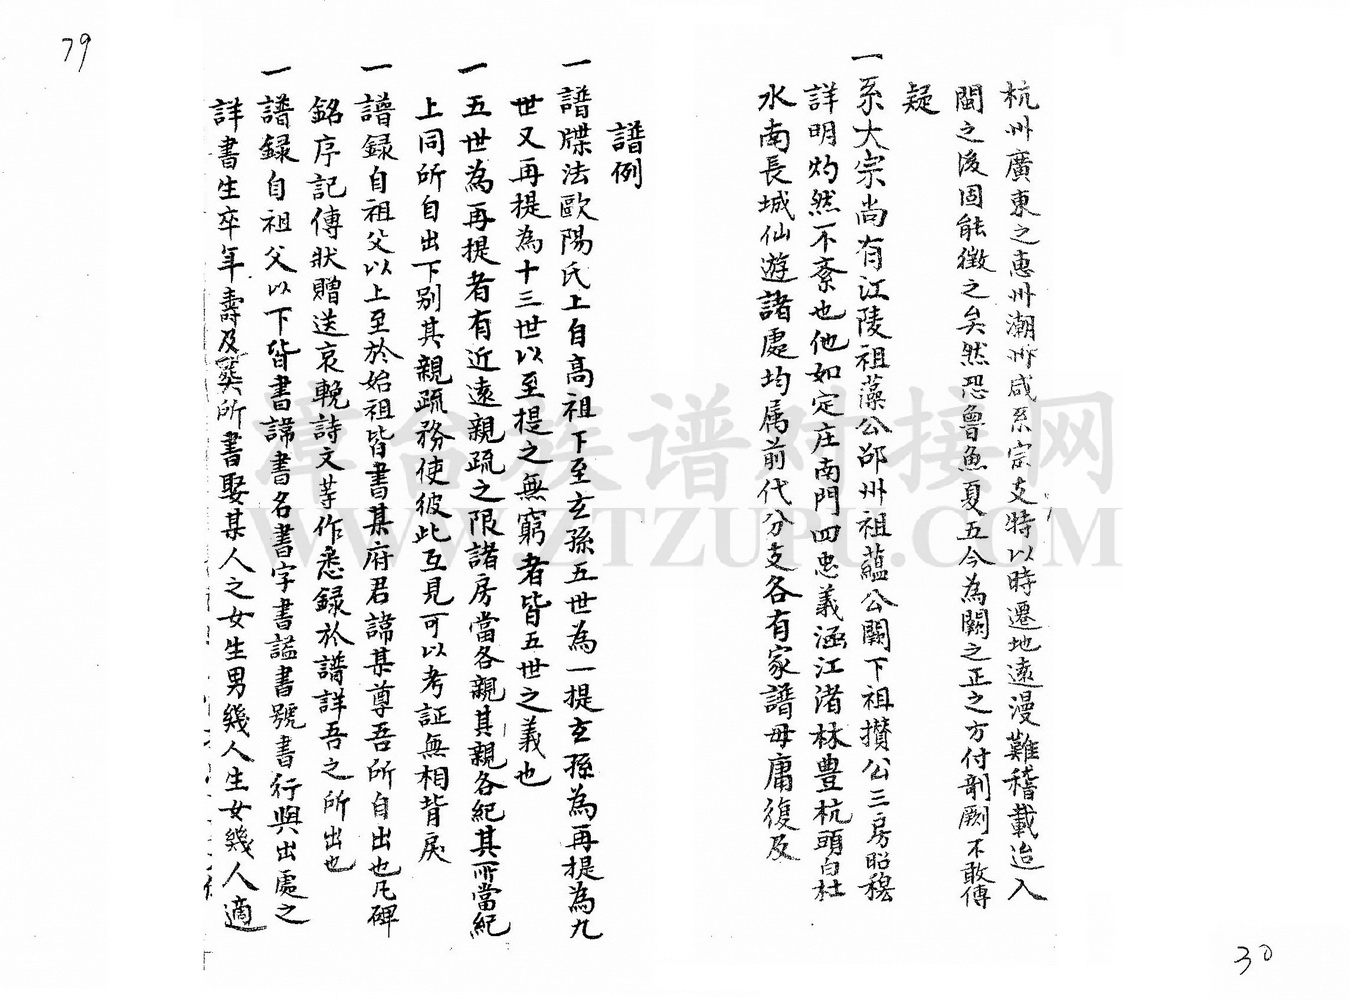 杭州廣東之惠州潮州咸系宗支特以時遷地遠漫難稽載迨入
閩之後固能徵之矣然恐魯魚夏五今為闕之正之方付剞劂不敢傳
疑
一系大宗尚有江陵祖藻公邵州祖蘊公闕下祖攢公三房昭穆
詳明灼然不紊也他如定庄南門四忠義涵江渚林豊杭頭白杜
水南長城仙遊諸處均属前代分支各有家譜毋庸復及
30
譜例
一譜牒法歐陽氏上自高祖下至玄孫五世為一提玄孫為再提為九
世又再提為十三世以至提之無窮者皆五世之義也
一五世為再提者有近遠親疏之限諸房當各親其親各紀其所當紀
上同所自出下别其親疏務使彼此互見可以考証無相背戾
一譜録自祖父以上至於始祖皆書某府君諱某尊吾所自出也凡碑
銘序記傳狀贈送哀輓詩文等作悉録於譜詳吾之所出也
一譜録自祖父以下皆書諱書名書字書謚書號書行與出處之
詳書生卒年壽及葬所書娶某人之女生男幾人生女幾人適
79
章台族谱对接网
WWW.ZTZUPU.COM